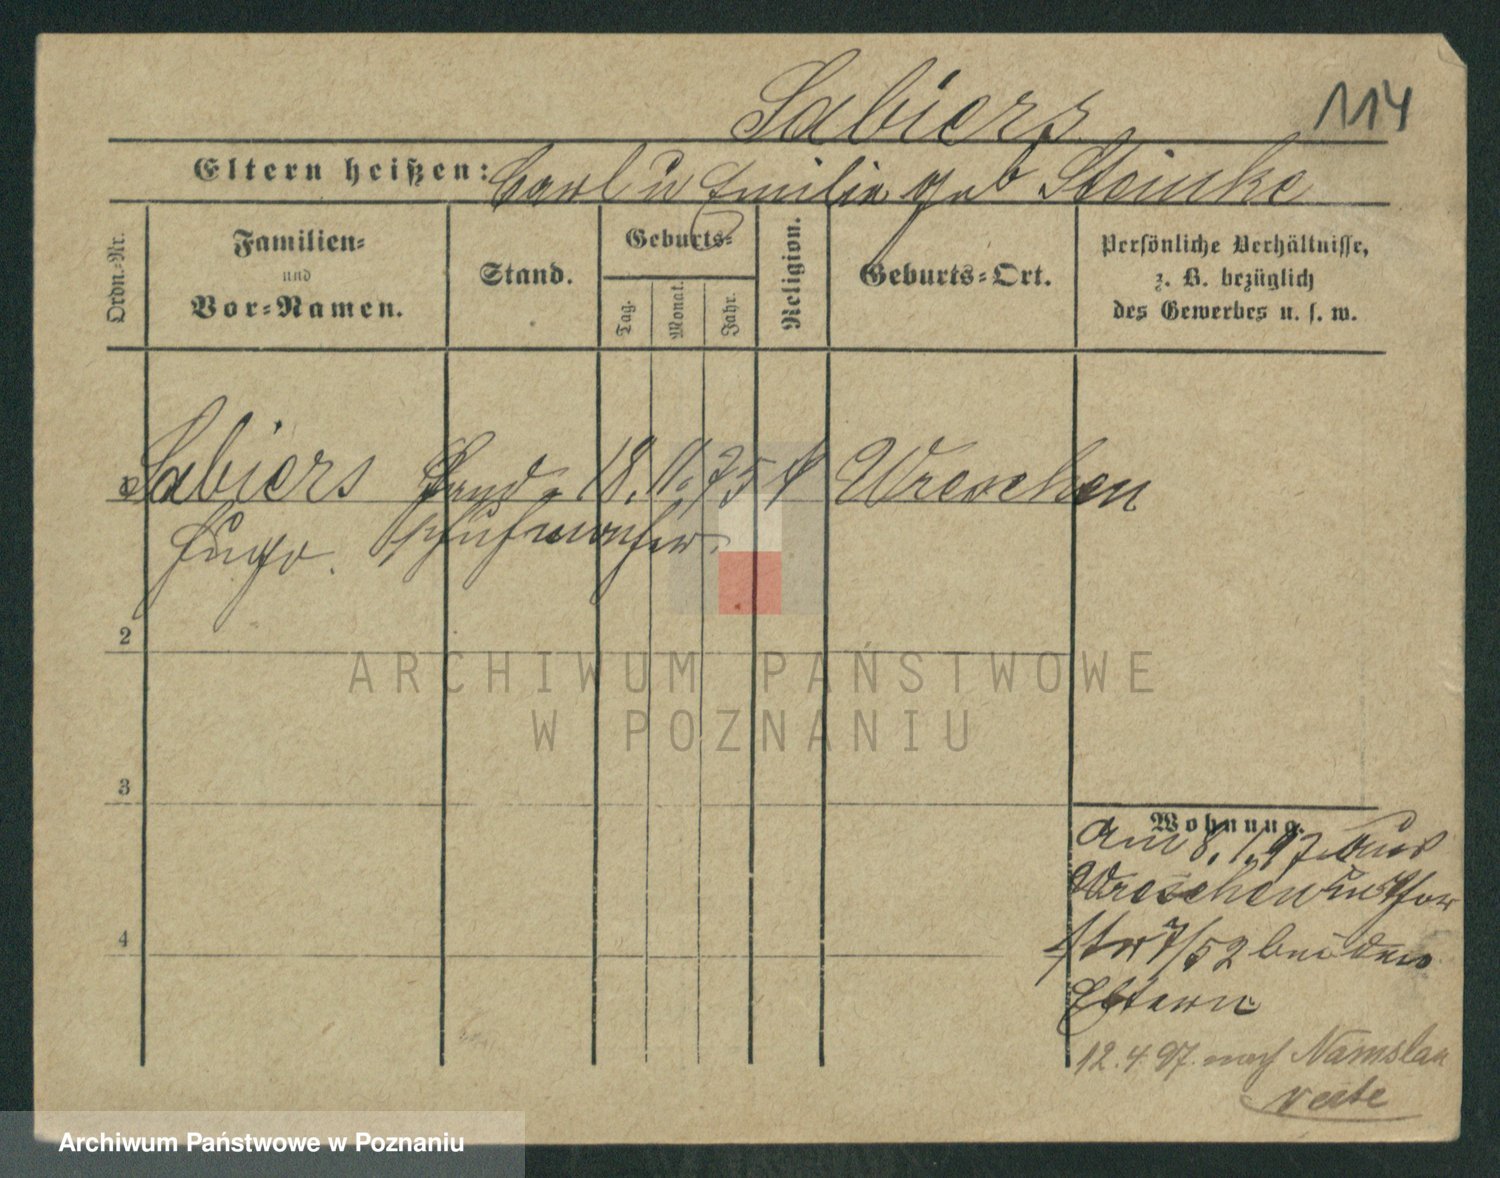 Sabiers 114
Eltern heißen: Carl u Emilie geb Steinke
Ordn.-Nr.
Familien-
und
Vor-Namen.
Stand.
Geburts-
Tag.
Monat.
Jahr.
Religion.
Geburts-Ort.
Persönliche Verhältnisse,
z. B. bezüglich
des Gewerbes u. s. w.
1 Sabiers 18. 11. 75 Wreschen
Hugo.
2
3
4
Wohnung.
Am 8. 1. 97 aus
Wreschen
7/52 bei den
Eltern
12. 4. 97. nach Namslau
verte
ARCHIWUM PAŃSTWOWE
W POZNANIU
Archiwum Państwowe w Poznaniu